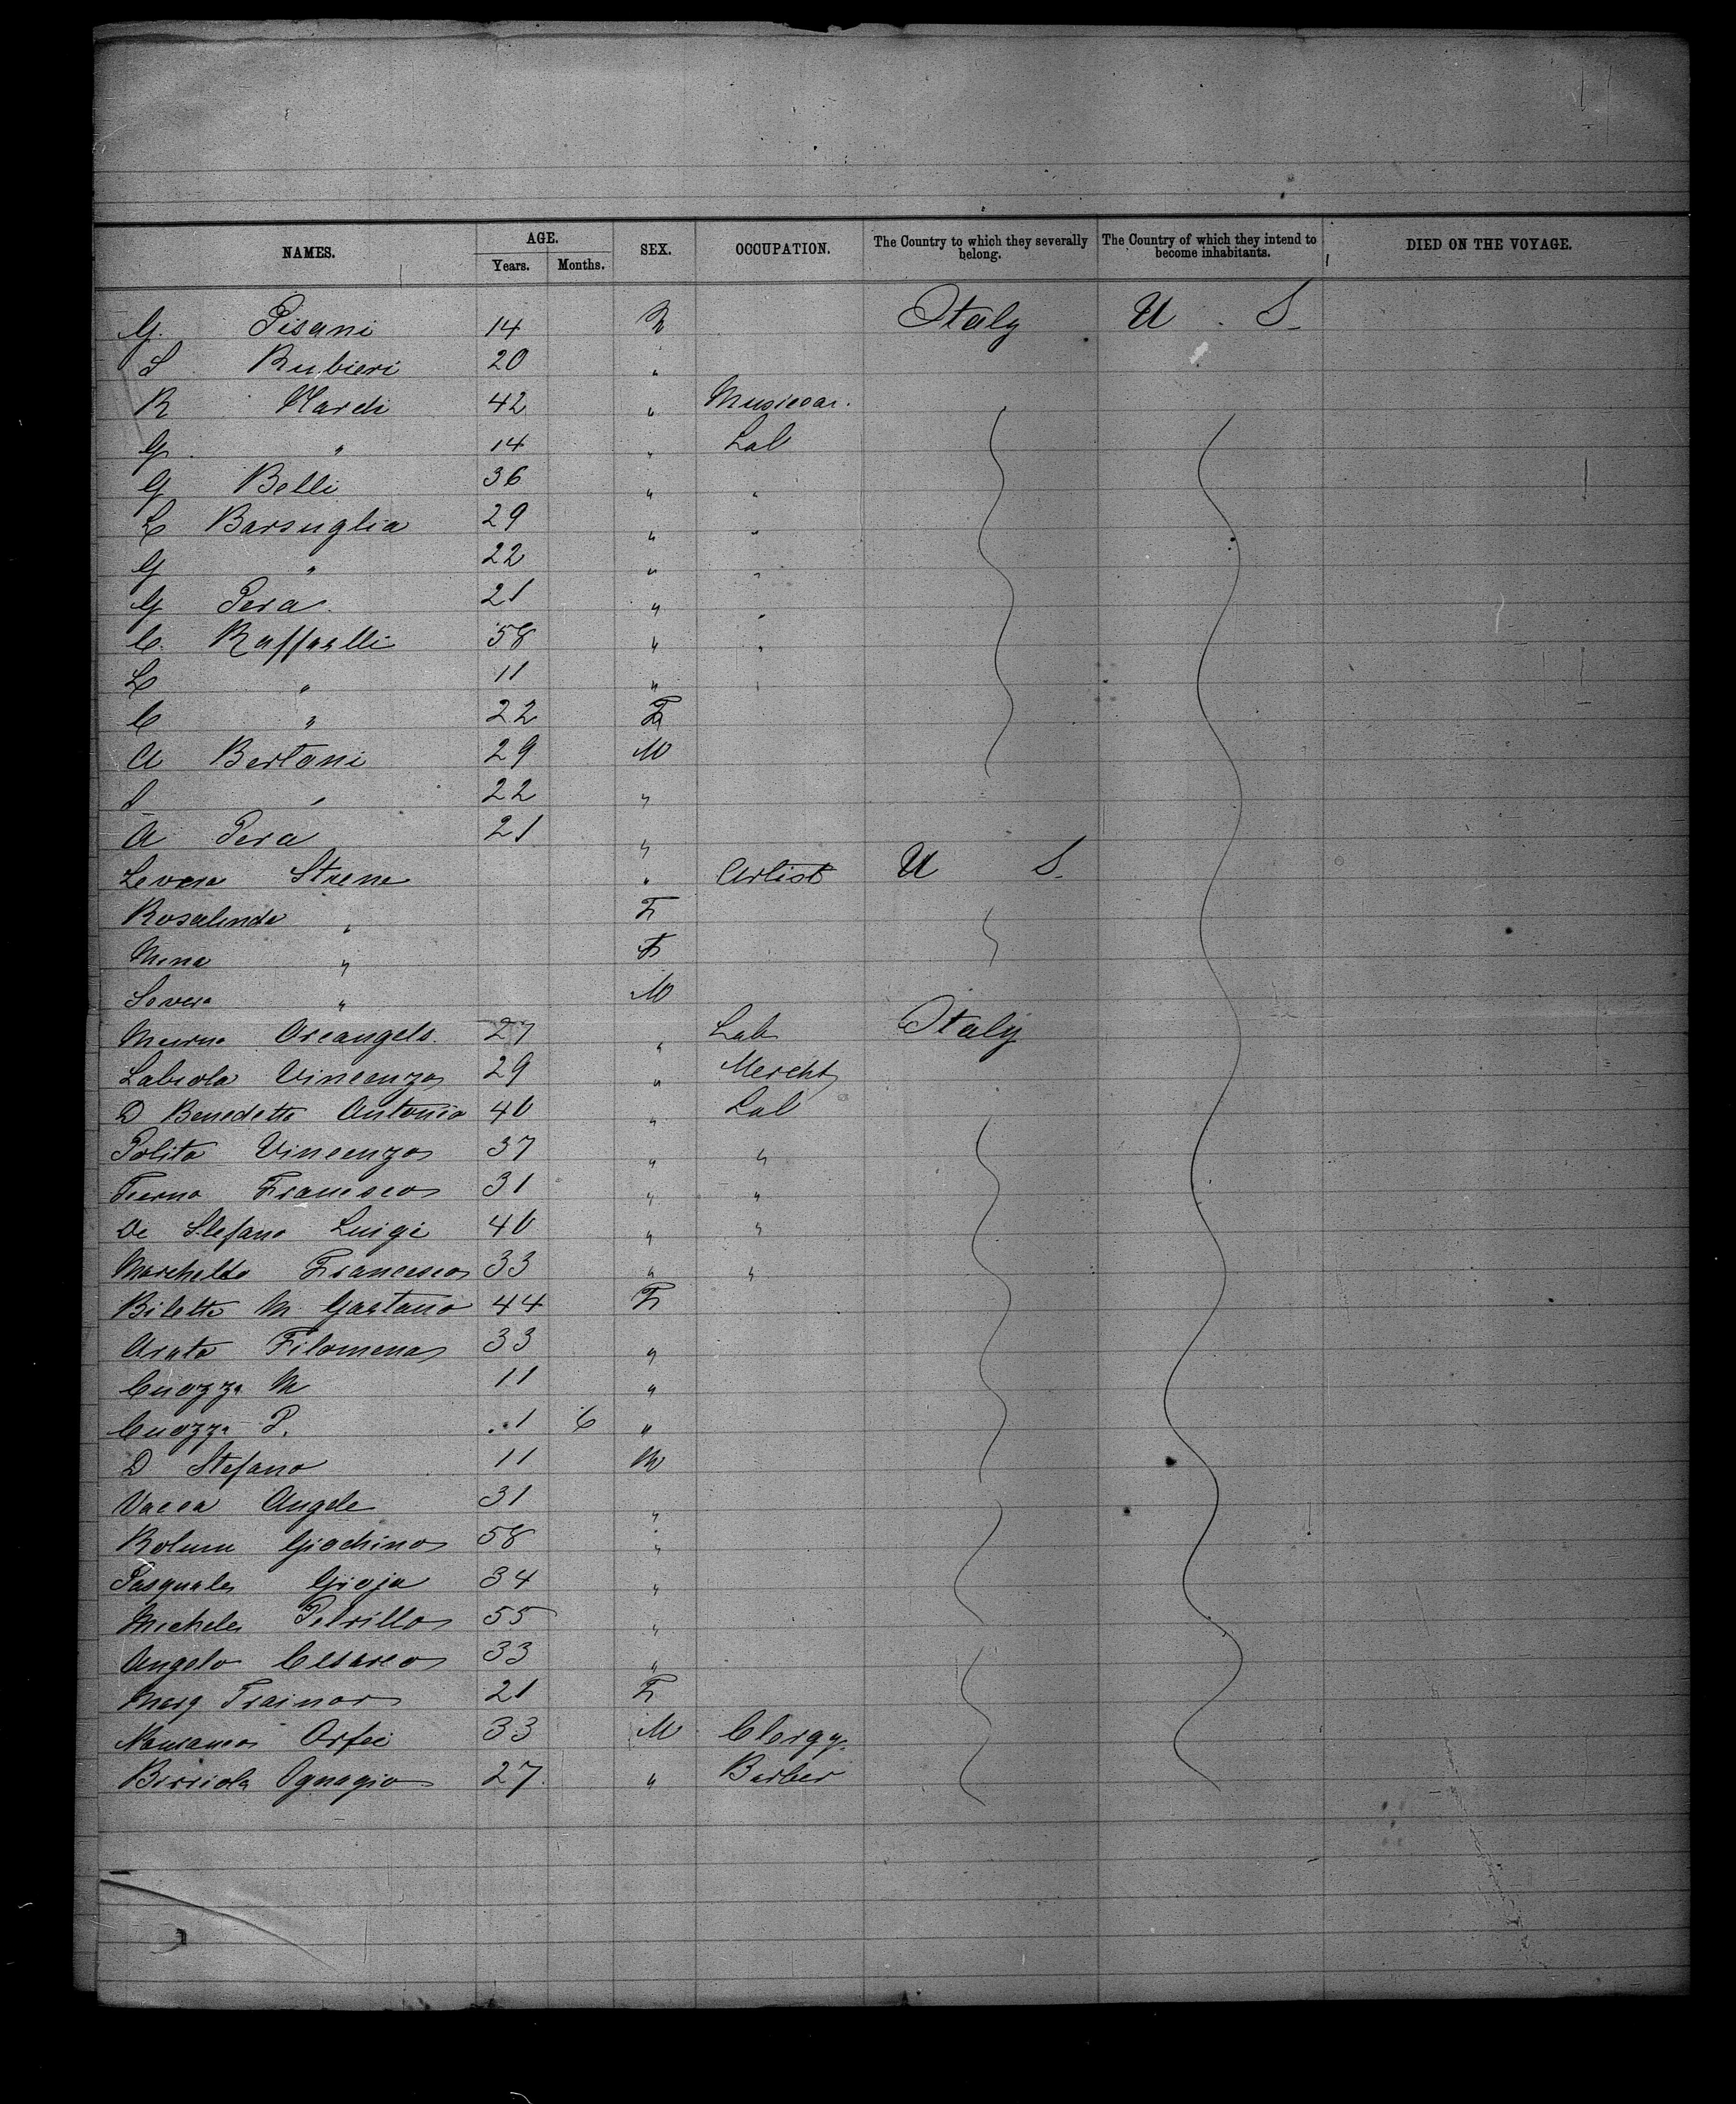 NAMES. AGE. Years. Months. SEX. OCCUPATION. The Country to which they severally belong. The Country of which they intend to become inhabitants. DIED ON THE VOYAGE.
G. Pisani 14 M Italy U. S.
S Rubieri 20 "
R Nardi 42 "
G " 14 " Lab
G Belli 36 " "
L Barsuglia 29 " "
G " 22 " "
G Pera 21 " "
C. Raffaelli 58 " "
L " 11 " "
C " 22 F
A Bertoni 29 M
S " 22 "
A Pera 21 "
Strena " Artist U S.
Rosalinda " F
Mina " F
Severa " M
Arcangelo 27 " Lab Italy
Labiola Vincenzo 29 " Mercht
D Benedetto Antonio 40 " Lab
Polito Vincenzo 37 " "
Tierno Francisco 31 " "
De Stefano Luigi 40 " "
Marchello Francesco 33 " "
Biletta M. Gaetano 44 F
Arata Filomena 33 "
Cuozza M 11 "
Cuozza P. 1 6 "
D Stefano 11 M
Vacca Angelo 31 "
Giachino 58 "
Pasquale Gioja 34 "
Michele Petrillo 55 "
Angelo Cesareo 33 "
Marg Trainor 21 F
Orfei 33 M Clergy.
Birriola Ognagio 27 " Barber